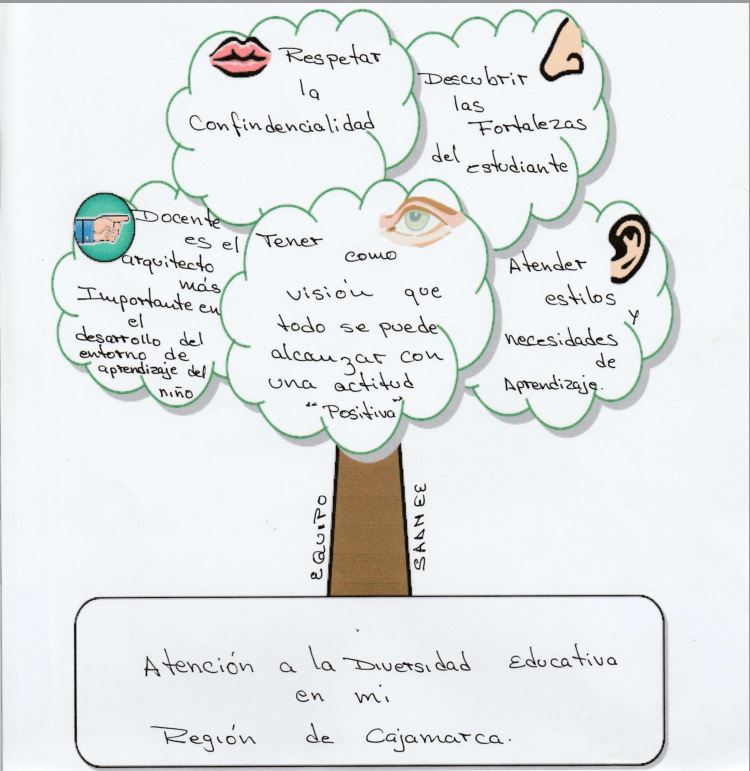 Respetar
la
Confindencialidad
Descubrir
las
Fortalezas
del Estudiante
Docente
es el
arquitecto
más
Importante en
el
desarrollo del
entorno de
aprendizaje del
niño
Tener
como
visión que
todo se puede
alcanzar con
una actitud
"Positiva"
Atender
estilos
y
necesidades
de
Aprendizaje.
EQUIPO
SAANEE
Atención a la Diversidad Educativa
en mi
Región de Cajamarca.